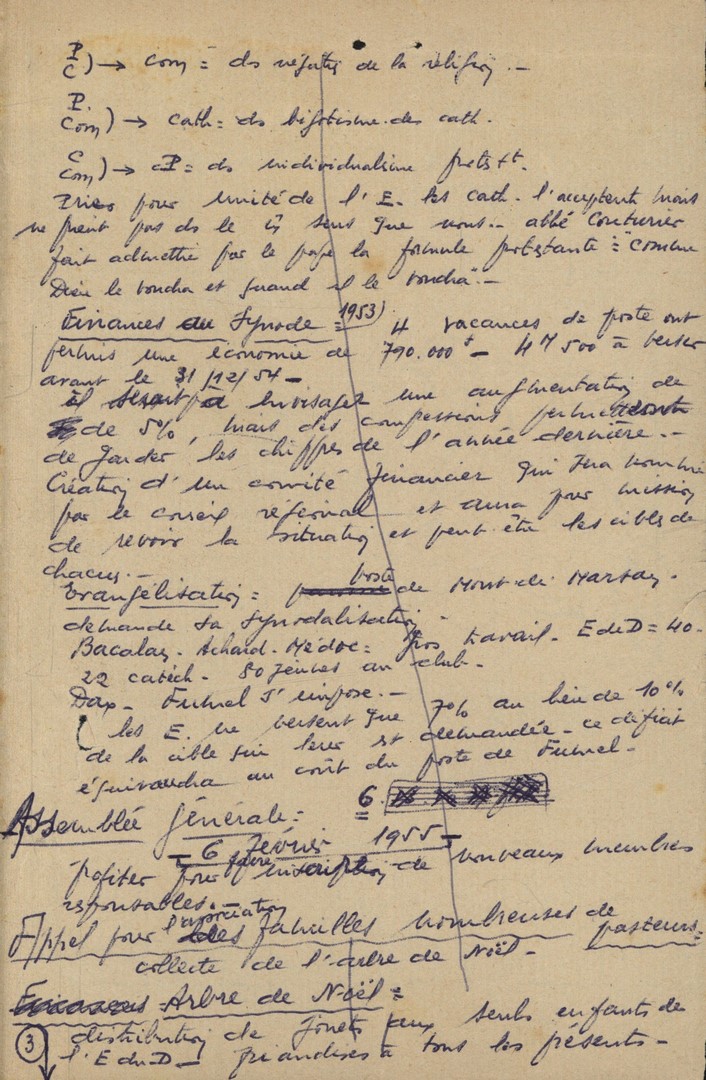 P/C) → Com = ds négatⁿ de la religion. —
P./Com) → cath = ds bigotisme des cath.
C/Com) → P = ds individualisme protestt.
Prier pour unité de l'E. les cath. l'acceptent mais
ne prient pas ds le m̂ sens que nous.- abbé Couturier
fait admettre par le pape la formule protestante = "comme
Dieu le voudra et quand il le voudra". —
Finances du Synode = 1953) 4 vacances de poste ont
permis une économie de 790.000 f — 4M 500 à verser
avant le 31/12/54 —
il envisager une augmentation de
de 5%, mais des compressions permettront
de garder les chiffres de l'année dernière. —
Création d'un comité financier qui sera nommé
par le conseil régional et aura pour mission
de revoir la situation et peut-être les cibles de
chacun. —
Evangélisation = poste de Mont-de-Marsan.
demande sa synodalisation.
Bacalan. Achard. Médoc = gros travail. E du D = 40.
22 catéch. 50 jeunes au club. —
Dax — Fumel s'impose. —
( les E. ne versent que 7% au lieu de 10%
de la cible qui leur st demandée — ce déficit
équivaudra au coût du poste de Fumel. —
Assemblée Générale = 6.
— 6 février 1955 —
profiter pour faire inscription de nouveaux membres
responsables.
Appel pour l'opération des familles nombreuses de pasteurs =
collecte de l'arbre de Noël —
Finances Arbre de Noël =
distribution de jouets aux seuls enfants de
(3) l'E du D — friandises à tous les présents —